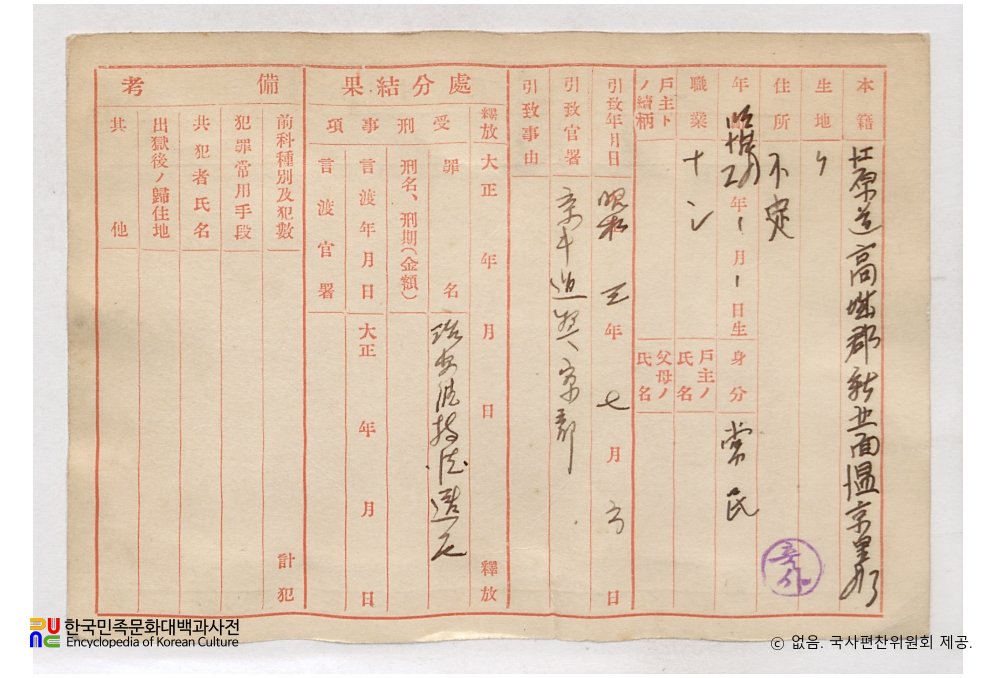 本籍
江原道高城郡新北面温井里
生地
〃
住所
不定
年
年 月 日生
身分
常民
職業
ナシ
戶主ノ氏名
戶主トノ續柄
父母ノ氏名
引致年月日
昭和 五 年 七 月 日
引致官署
引致事由
處分結果
釋放
大正 年 月 日 釋放
受刑事項
罪名
治安維持法違反
刑名、刑期(金額)
言渡年月日
大正 年 月 日
言渡官署
備考
前科種別及犯數
計 犯
犯罪常用手段
共犯者氏名
出獄後ノ歸住地
其他
한국민족문화대백과사전
Encyclopedia of Korean Culture
ⓒ 없음. 국사편찬위원회 제공.